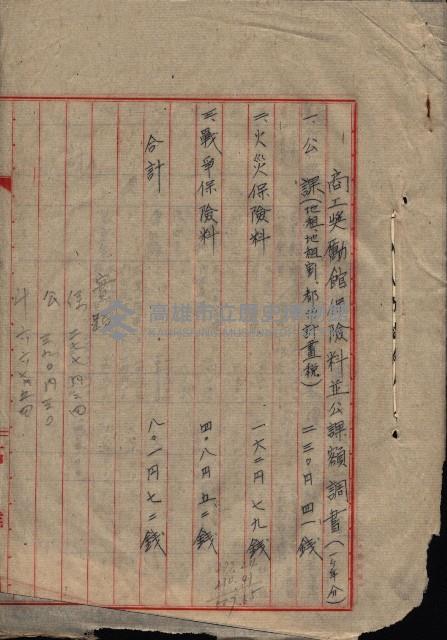 商工奨勵館保險料並公課額調書(一ヶ年分)
一、公課(地租、地租割、都市計畫税) 二三〇円四一錢
二、火災保險料 一六二円七九錢
三、戰爭保險料 四〇八円五二錢
合計 八〇一円七二錢
實額
公
計
高雄市立歷史博物館
KAOHSIUNG MUSEUM OF HISTORY